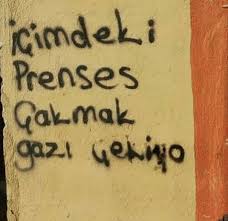 içimdeki
Prenses
Çakmak
gazı çekiyo